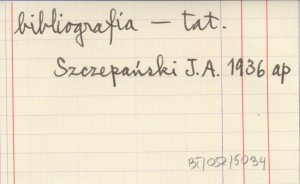 bibliografia — tat.
Szczepański J.A. 1936 ap
BT/052/5034